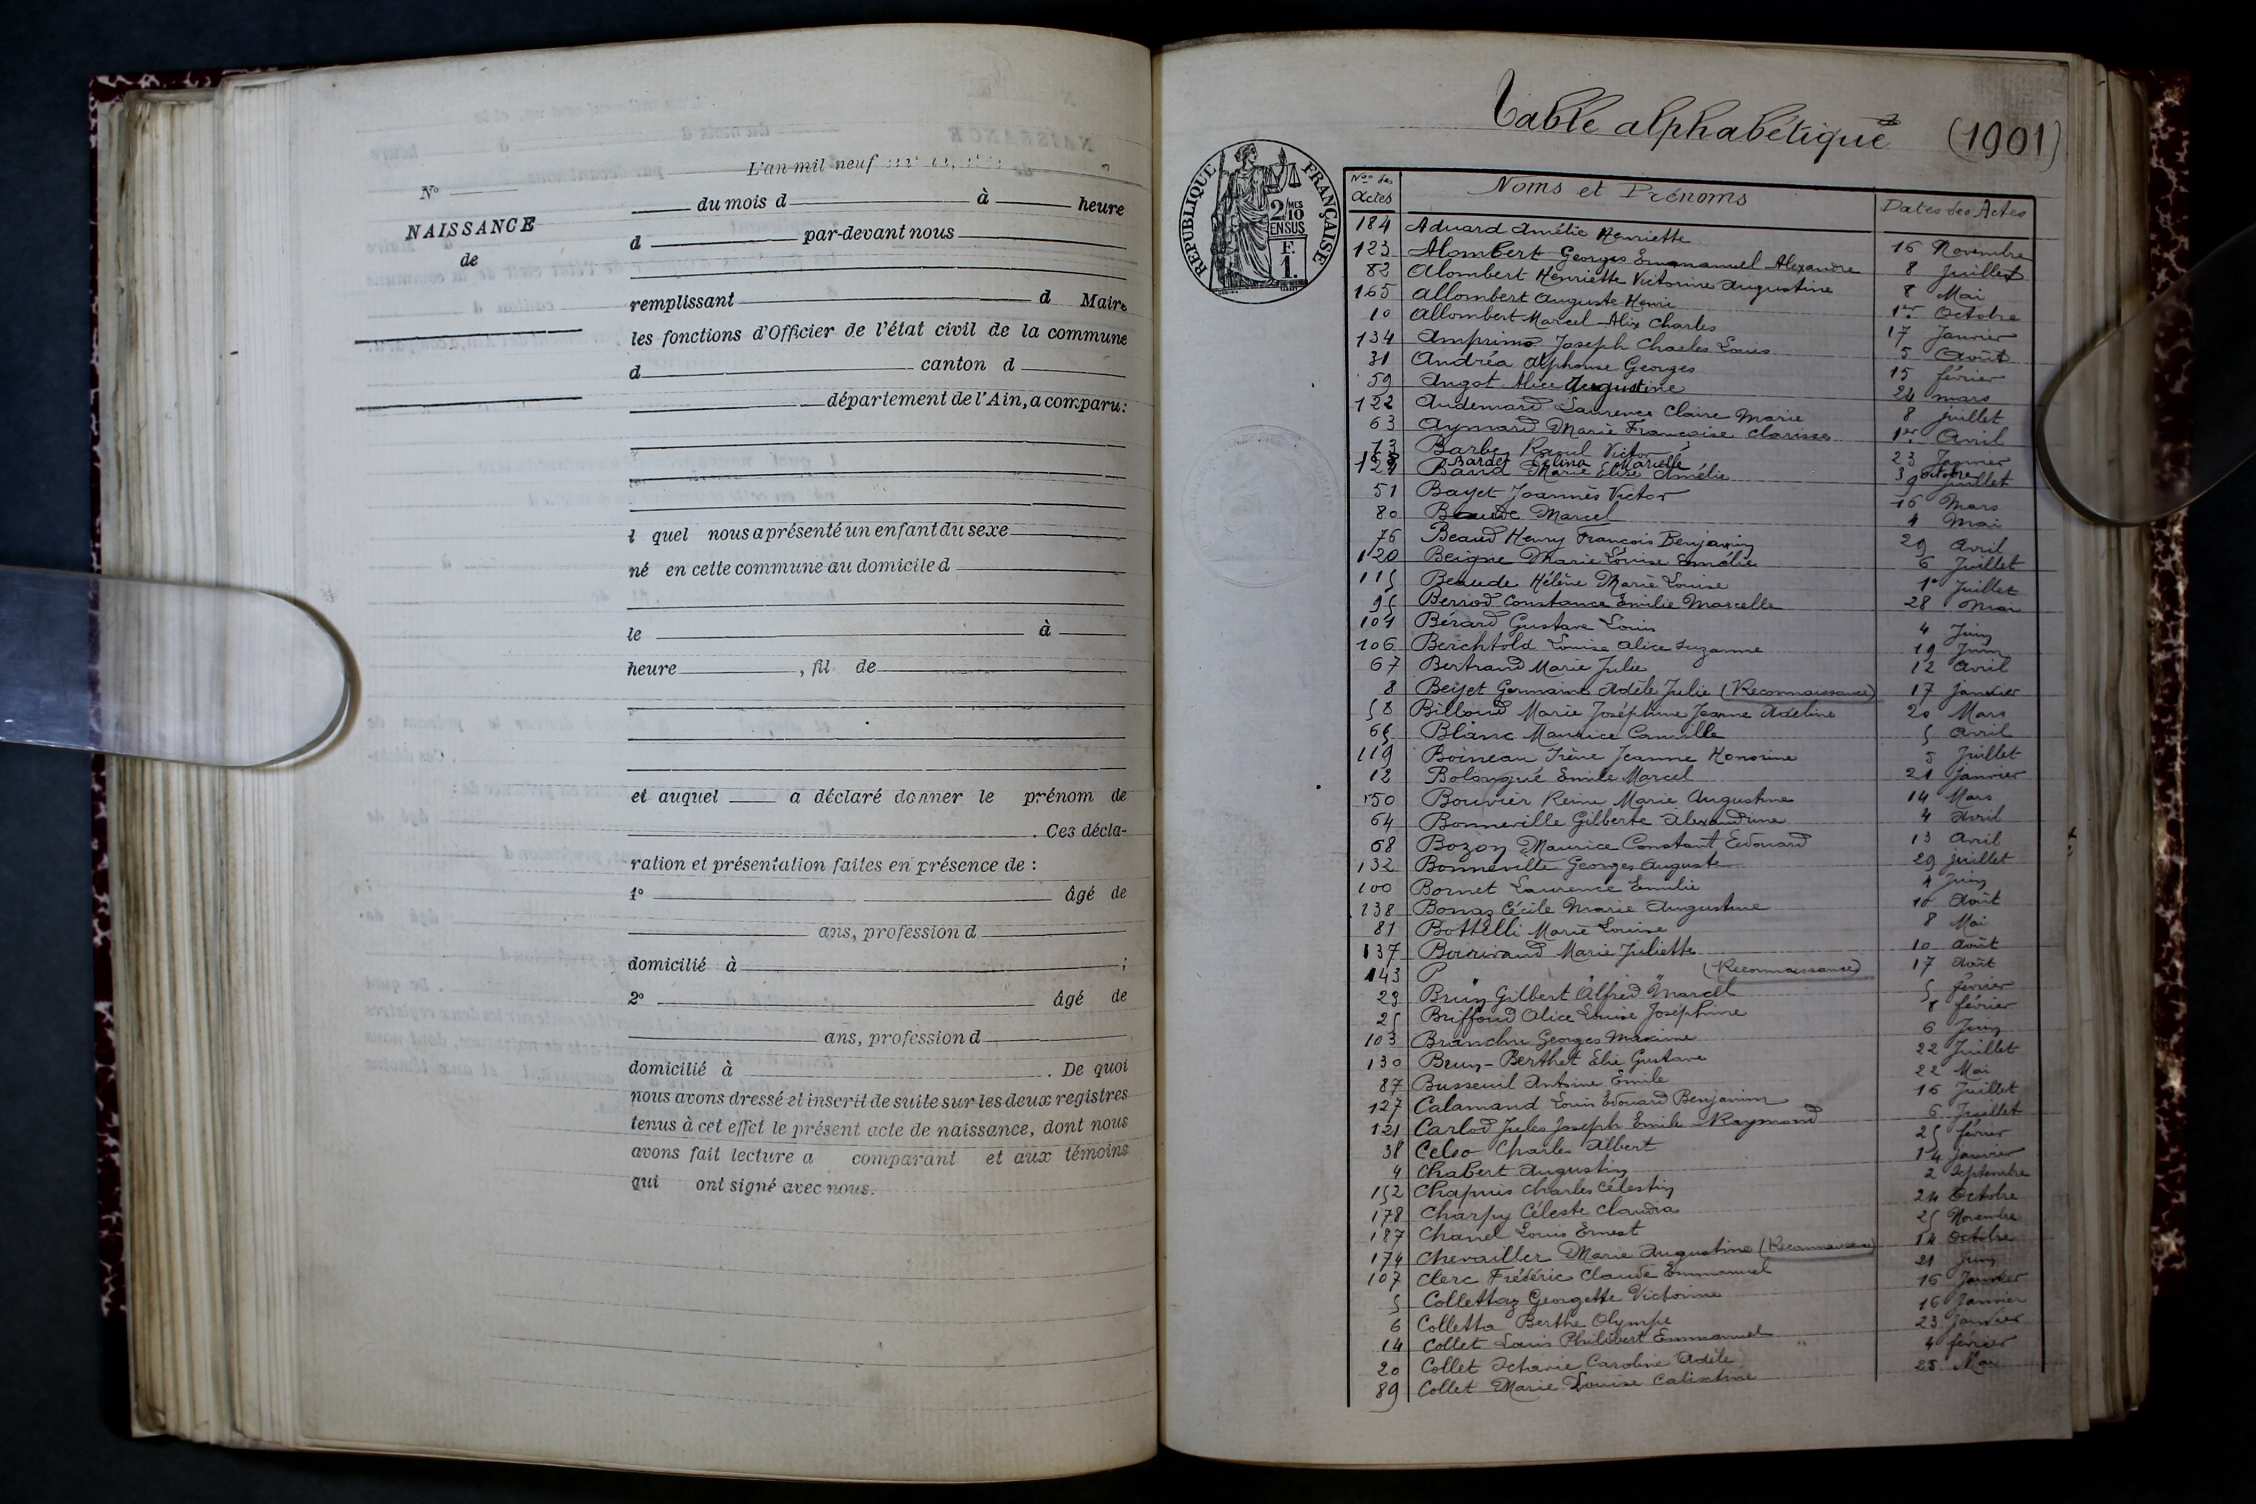 L'an mil neuf
N°
NAISSANCE
de
du mois d à heure
d par-devant nous
remplissant d Maire
les fonctions d'Officier de l'état civil de la commune
d canton d
département de l'Ain, a comparu:
l quel nous a présenté un enfant du sexe
né en cette commune au domicile d
le à
heure , fil de
et auquel a déclaré donner le prénom de
. Ces décla-
ration et présentation faites en présence de :
1° âgé de
ans, profession d
domicilié à ;
2° âgé de
ans, profession d
domicilié à . De quoi
nous avons dressé et inscrit de suite sur les deux registres
tenus à cet effet le présent acte de naissance, dont nous
avons fait lecture a comparant et aux témoins
qui ont signé avec nous.
Table alphabétique (1901)
RÉPUBLIQUE FRANÇAISE
2/10 MES
EN SUS
F.
1.
Nos des Actes Noms et Prénoms Dates des Actes
184 Aduard Amélie Henriette 16 Novembre
123 Alombert Georges Emmanuel Alexandre 8 Juillet
82 Alombert Henriette Victorine Augustine 8 Mai
165 Allombert Auguste Henri 1er Octobre
10 Allombert Marcel Alix Charles 17 Janvier
134 Amprimo Joseph Charles Louis 5 Août
31 Andréa Alphonse Georges 15 février
59 Angot Alice Augustine 24 mars
122 Audemard Laurence Claire Marie 8 juillet
63 Aymard Marie Françoise Clarisse 1er Avril
13 Barbe Raoul Victor 23 Janvier
Bardet Célina Marcelle 3 octobre
124 Band Marie Elise Amélie 9 juillet
51 Bayet Joannès Victor 16 Mars
80 Beaude Marcel 4 Mai
76 Beaud Henry François Benjamin 29 Avril
120 Beigne Marie Louise Emélie 6 Juillet
115 Beaude Hélène Marie Louise 1er Juillet
95 Berrod Constance Emilie Marcelle 28 Mai
104 Bérard Gustave Louis 4 Juin
106 Berchtold Louise Alice Suzanne 19 Juin
67 Bertrand Marie Julie 12 Avril
8 Beyet Germaine Adèle Julie (Reconnaissance) 17 janvier
58 Billoud Marie Joséphine Jeanne Adeline 20 Mars
65 Blanc Maurice Camille 5 Avril
119 Boineau Irène Jeanne Honorine 5 Juillet
12 Bolongué Emile Marcel 21 Janvier
50 Bouvier Reine Marie Augustine 14 Mars
64 Bonneville Gilberte Alexandrine 4 Avril
68 Bozon Maurice Constant Edouard 13 Avril
132 Bonneville Georges Auguste 29 juillet
100 Bornet Laurence Emilie 4 Juin
138 Bonaz Cécile Marie Augustine 10 Août
81 Bottelli Marie Louise 8 Mai
137 Boirivand Marie Juliette 10 Août
143 (Reconnaissance) 17 Août
23 Brun Gilbert Alfred Marcel 5 février
25 Briffoud Alice Louise Joséphine 8 février
103 Branchu Georges Maxime 6 Juin
130 Brun-Berthet Elie Gustave 22 Juillet
87 Busseuil Antoine Emile 22 Mai
127 Calamand Louis Edouard Benjamin 16 Juillet
121 Carlod Jules Joseph Emile Raymond 6 Juillet
38 Celso Charles Albert 25 février
4 Chabert Augustin 14 Janvier
152 Chapuis Charles Célestin 2 Septembre
178 Charpy Céleste Claudia 24 Octobre
187 Chanel Louis Ernest 25 Novembre
174 Chevailler Marie Augustine (Reconnaissance) 14 Octobre
107 Clerc Frédéric Claude Emmanuel 21 Juin
5 Collettaz Georgette Victorine 16 Janvier
6 Colletta Berthe Olympe 16 Janvier
14 Collet Louis Philibert Emmanuel 23 Janvier
20 Collet Octavie Caroline Adèle 4 février
89 Collet Marie Louise Calixtine 25 Mai